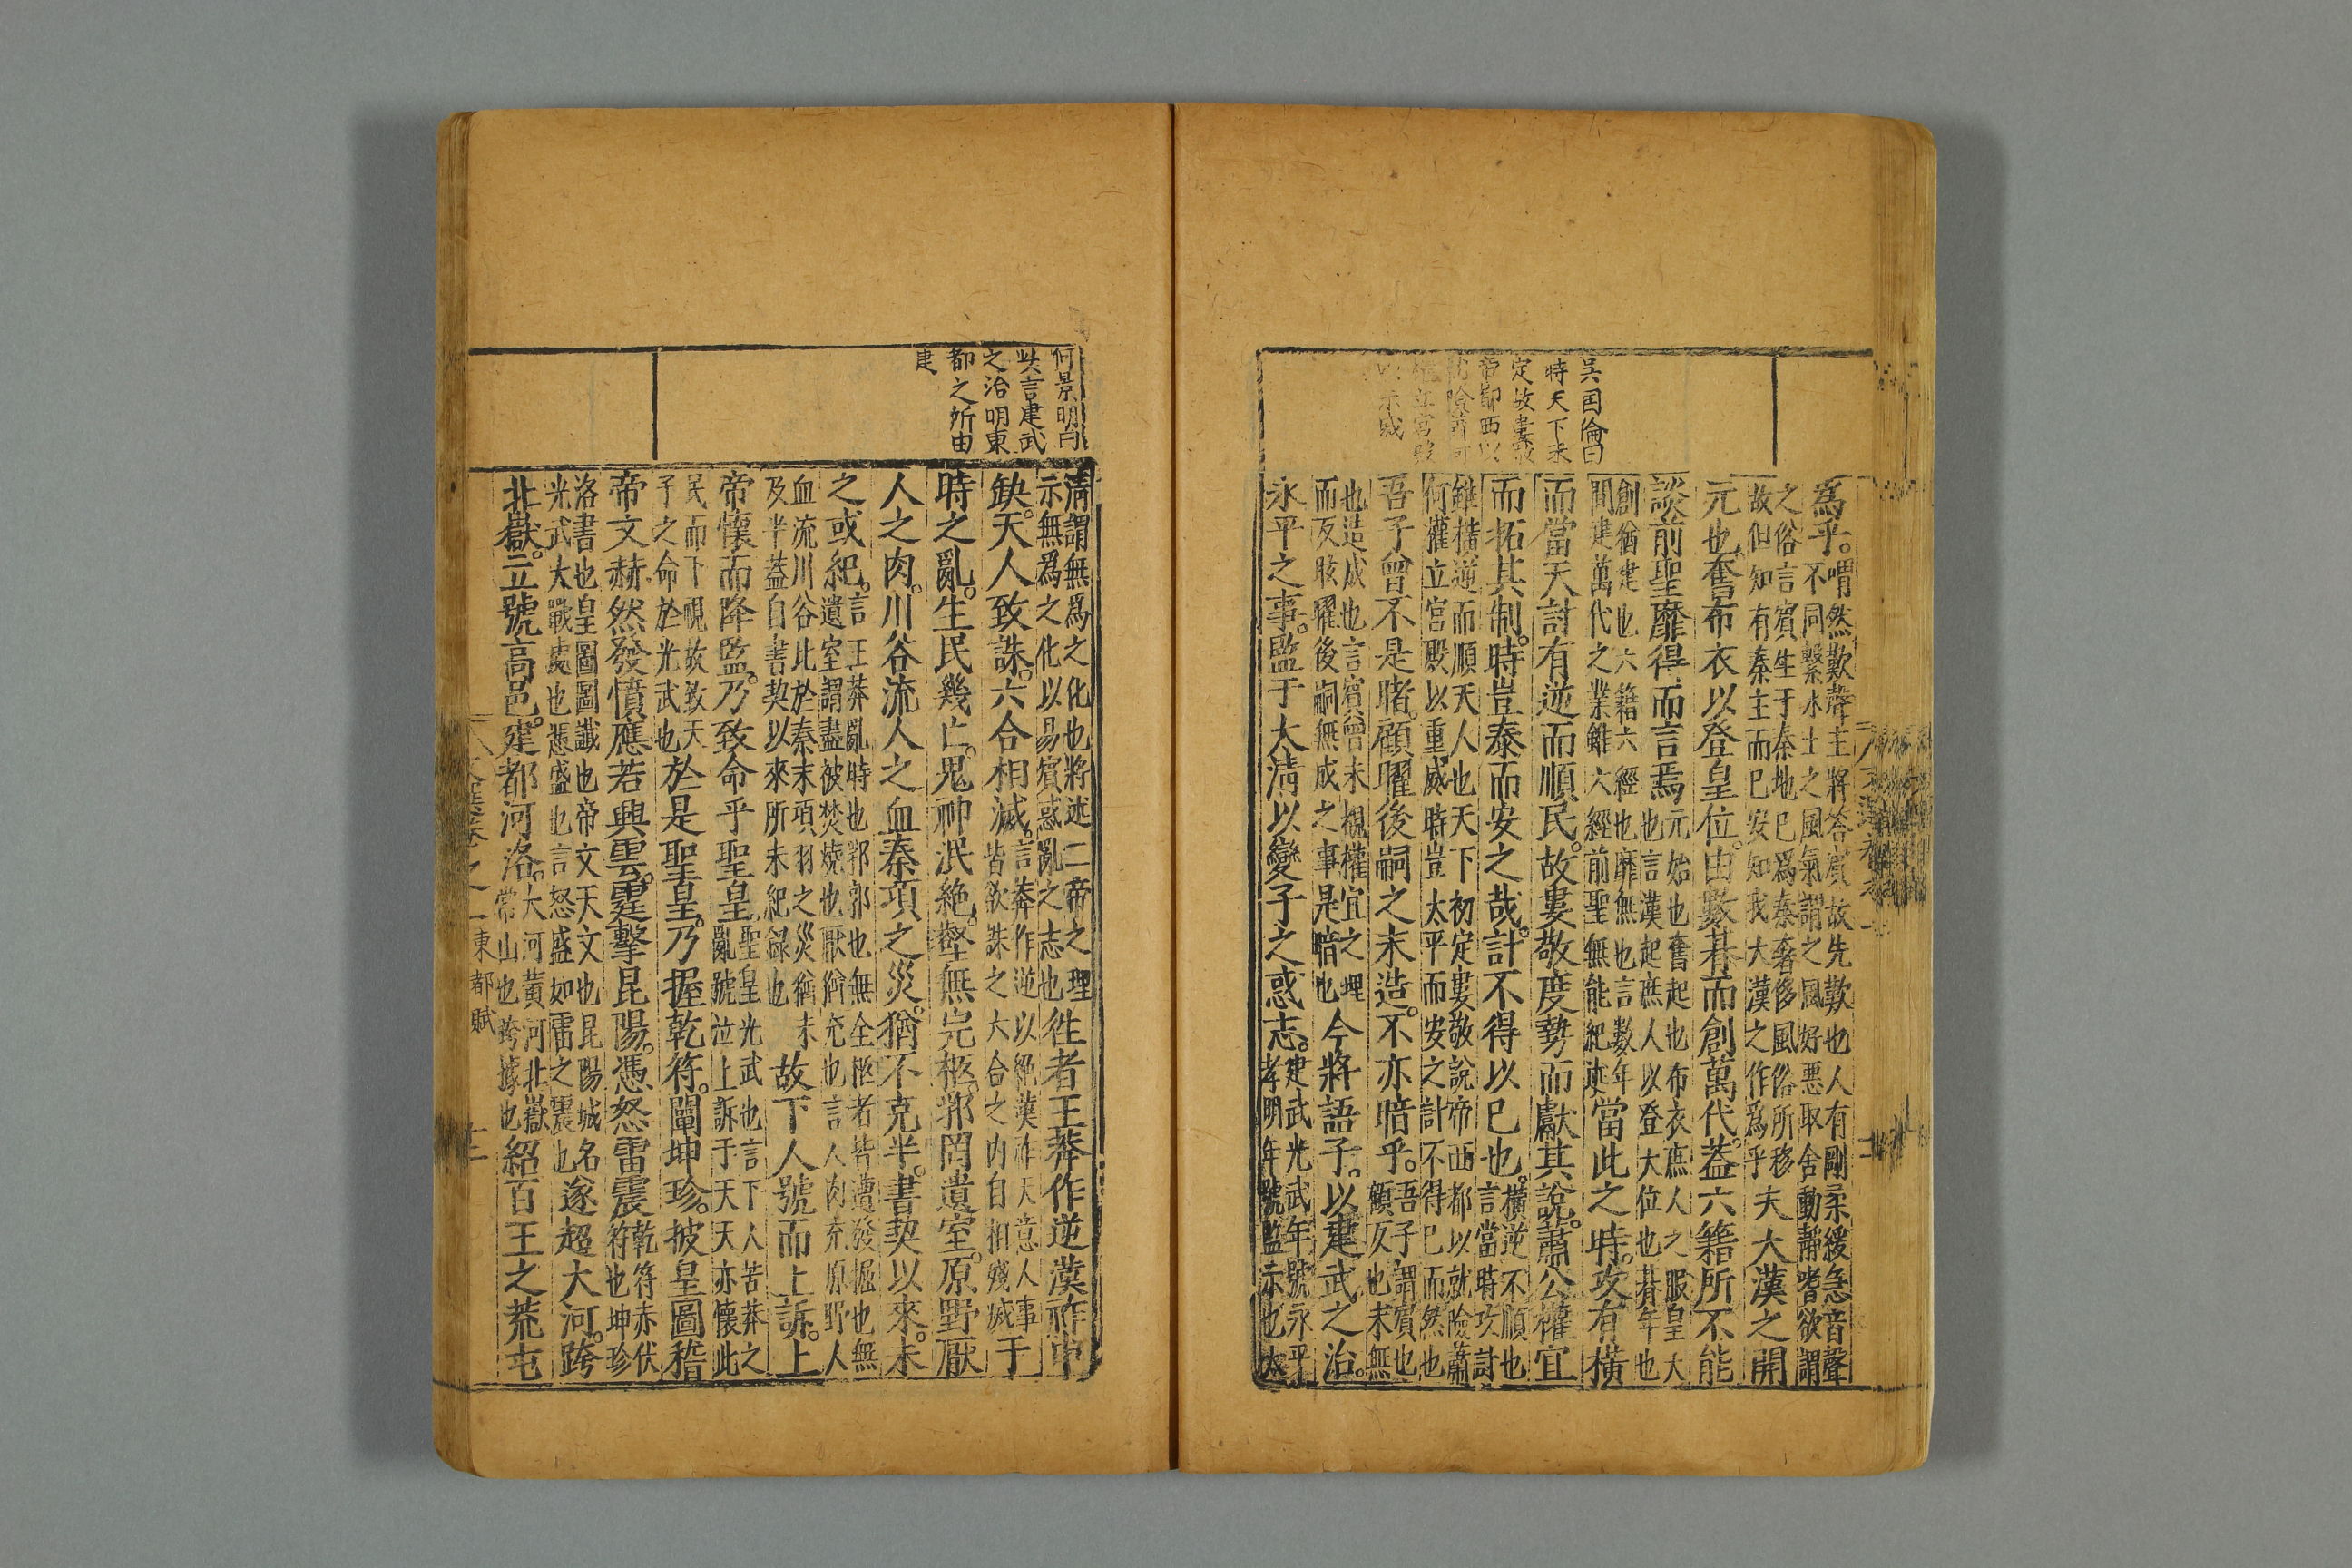 吳国倫曰
時天下未
定故婁敬
帝都西以
為乎。喟然歎聲主將答賓故先歎也人有剛柔緩急音聲
不同繫水土之風氣謂之風好惡取舍動靜嗜欲謂
之俗言賓生于秦地已為秦奢侈風俗所移
故但知有秦主而已安知我大漢之作為乎夫大漢之開
元也。奮布衣以登皇位。由數朞而創萬代。蓋六籍所不能
談前聖靡得而言焉元始也奮起也布衣庶人之服皇大
也言漢起庶人以登大位也朞年也
創猶建也六籍六經也靡無也言數年
間建萬代之業雖六經前聖無能紀迹當此之時。攻有橫
而當天討有逆而順民。故婁敬度勢而獻其說。蕭公權宜
而拓其制。時豈泰而安之哉。計不得以已也。橫逆不順也
言當時攻討
雖橫逆而順天人也天下初定婁敬說帝西都以就險蕭
何權立宮殿以重威時豈太平而安之計不得已而然也
吾子曾不是睹。顧曜後嗣之末造。不亦暗乎。吾子謂賓也
顧反也末無
也造成也言賓曾未覩權宜之理
而反眩曜後嗣無成之事是暗也今將語子。以建武之治。
永平之事。監于大清以變子之惑志。建武光武年號永平
孝明年號監示也太
何景明曰
此言建武
之治明東
都之所由
建
清謂無為之化也將述二帝之理
示無為之化以易賓惑亂之志也徃者王莽作逆漢祚中
缺。天人致誅。六合相滅。言莽作逆以絕漢祚天意人事
皆欲誅之六合之内自相殘滅于
時之亂。生民幾亡。鬼神泯絕。壑無完柩。郛罔遺室。原野厭
人之肉。川谷流人之血秦項之災。猶不克半。書契以來。未
之或紀。言王莽亂時也郛郭也無全柩者皆遭發掘也無
遺室謂盡被焚燒也厭猶充也言人肉充原野人
血流川谷此於秦末項羽之災猶未
及半蓋自書契以來所未紀錄也故下人號而上訴。上
帝懷而降監。乃致命乎聖皇。聖皇光武也言下人苦莽之
亂號泣上訴于天天亦懷此
民而下視故致天
子之命於光武也於是聖皇。乃握乾符。闡坤珍。披皇圖稽
帝文赫然發憤應若興雲。霆擊昆陽。憑怒雷震乾符赤伏
符也坤珍
洛書也皇圖圖讖也帝文天文也昆陽城名
光武大戰處也憑盛也言怒盛如雷之震也遂超大河。跨
北嶽。立號高邑。建都河洛。大河黃河北嶽
常山也跨據也紹百王之荒屯
東都賦